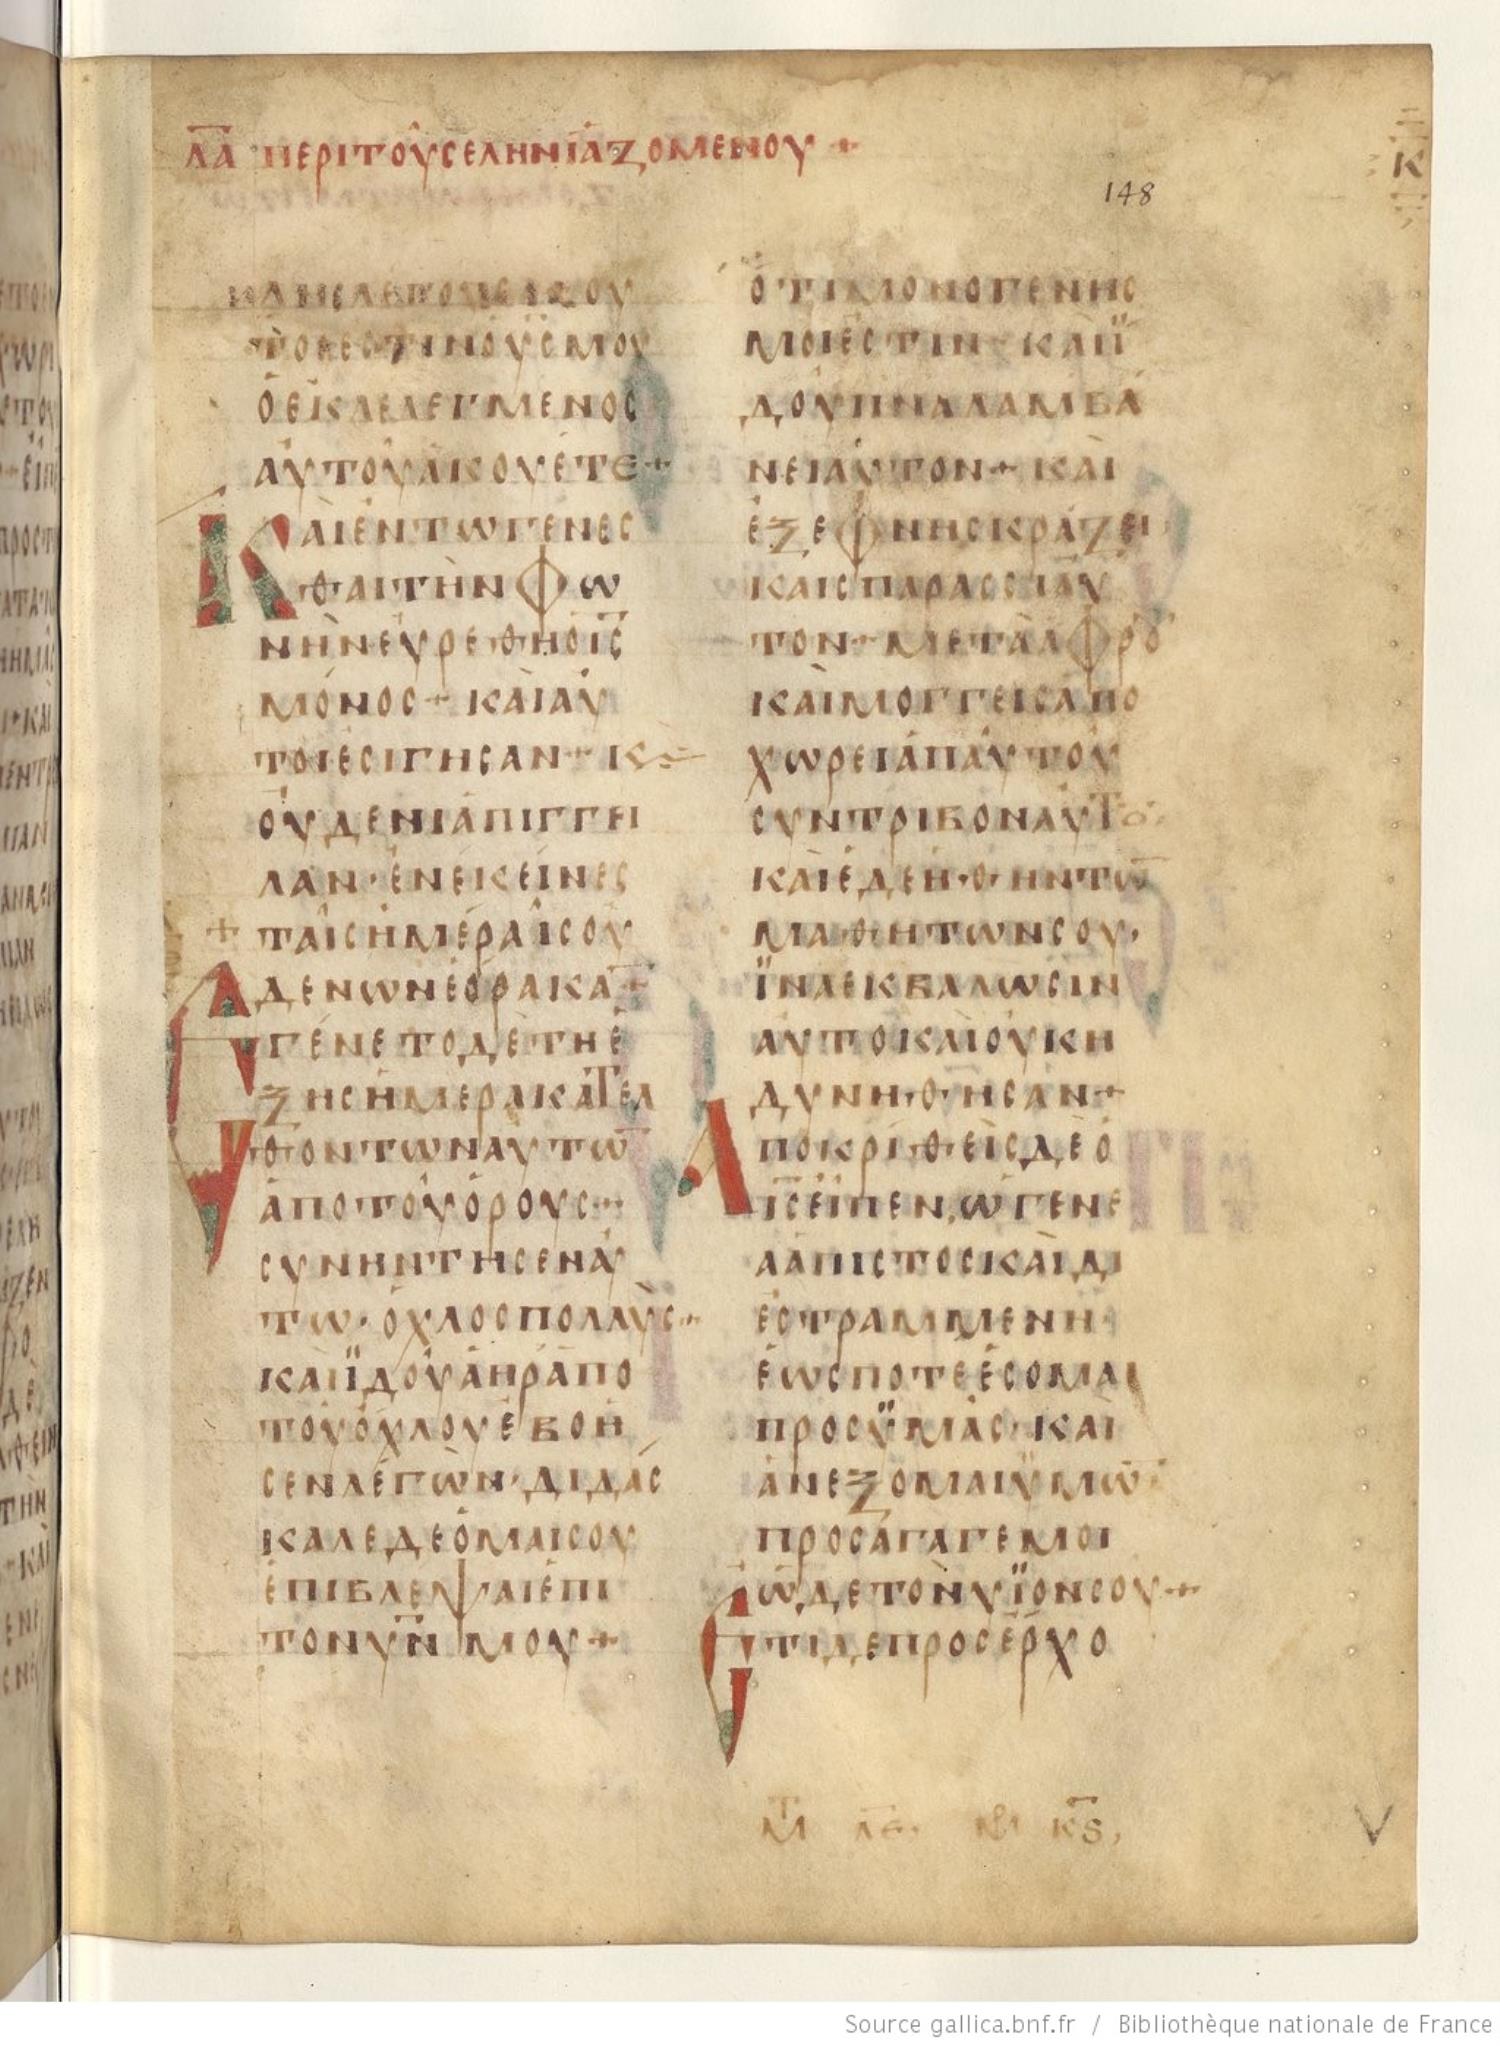 ΛΑ ΠΕΡΙ ΤΟΥ ΣΕΛΗΝΙΑΖΟΜΕΝΟΥ +
148
Κ
ΤΟΣ ΕΣΤΙΝ Ο ΥΣ ΜΟΥ
Ο ΕΚΛΕΛΕΓΜΕΝΟΣ
ΑΥΤΟΥ ΑΚΟΥΕΤΕ +
ΚΑΙ ΕΝ ΤΩ ΓΕΝΕΣ
ΘΑΙ ΤΗΝ ΦΩ
ΝΗΝ ΕΥΡΕΘΗ Ο ΙΣ
ΜΟΝΟΣ + ΚΑΙ ΑΥ
ΤΟΙ ΕΣΙΓΗΣΑΝ + Κ
ΟΥΔΕΝΙ ΑΠΙΓΓΕΙ
ΛΑΝ · ΕΝ ΕΚΕΙΝΕΣ
+ ΤΑΙΣ ΗΜΕΡΑΙΣ ΟΥ
ΔΕΝ ΩΝ ΕΟΡΑΚΑ +
ΕΓΕΝΕΤΟ ΔΕ ΤΗ Ε
ΞΗΣ ΗΜΕΡΑ ΚΑΤΕΛ
ΘΟΝΤΩΝ ΑΥΤΩ
ΑΠΟ ΤΟΥ ΟΡΟΥΣ +
ΣΥΝΗΝΤΗΣΕΝ ΑΥ
ΤΩ · ΟΧΛΟΣ ΠΟΛΛΥΣ +
ΚΑΙ ΪΔΟΥ ΑΗΡ ΑΠΟ
ΤΟΥ ΟΧΛΟΥ ΕΒΟΗ
ΣΕΝ ΛΕΓΩΝ · ΔΙΔΑΣ
ΚΑΛΕ ΔΕΟΜΑΙ ΣΟΥ
ΕΠΙΒΛΕΨΑΙ ΕΠΙ
ΤΟΝ ΥΝ ΜΟΥ +
ΟΤΙ ΜΟΝΟΓΕΝΗΣ
ΜΟΙ ΕΣΤΙΝ ΚΑΙ Ϊ
ΔΟΥ ΠΝΑ ΛΑΜΒΑ
ΝΕΙ ΑΥΤΟΝ + ΚΑΙ
ΕΞΕΦΝΗΣ ΚΡΑΖΕΙ
ΚΑΙ ΣΠΑΡΑΣΣΙ ΑΥ
ΤΟΝ + ΜΕΤΑ ΑΦΡΟ
ΚΑΙ ΜΟΓΓΕΙΣ ΑΠΟ
ΧΩΡΕΙ ΑΠ ΑΥΤΟΥ
ΣΥΝΤΡΙΒΟΝ ΑΥΤΟ
ΚΑΙ ΕΔΕΗΘΗΝ ΤΩ
ΜΑΘΗΤΩΝ ΣΟΥ ·
ΪΝΑ ΕΚΒΑΛΩΣΙΝ
ΑΥΤΟ ΚΑΙ ΟΥΚ Η
ΔΥΝΗΘΗΣΑΝ +
ΑΠΟΚΡΙΘΕΙΣ ΔΕ Ο
ΙΣ ΕΙΠΕΝ, Ω ΓΕΝΕ
Α ΑΠΙΣΤΟΣ ΚΑΙ ΔΙ
ΕΣΤΡΑΜΜΕΝΗ ·
ΕΩΣ ΠΟΤΕ ΕΣΟΜΑΙ
ΠΡΟΣ ΫΜΑΣ · ΚΑΙ
ΑΝΕΞΟΜΑΙ ΫΜΩ
ΠΡΟΣΑΓΑΓΕ ΜΟΙ
ΩΔΕ ΤΟΝ ΥΪΟΝ ΣΟΥ +
ΕΤΙ ΔΕ ΠΡΟΣΕΡΧΟ
ΛΕ · ΚϚ
Source gallica.bnf.fr / Bibliothèque nationale de France